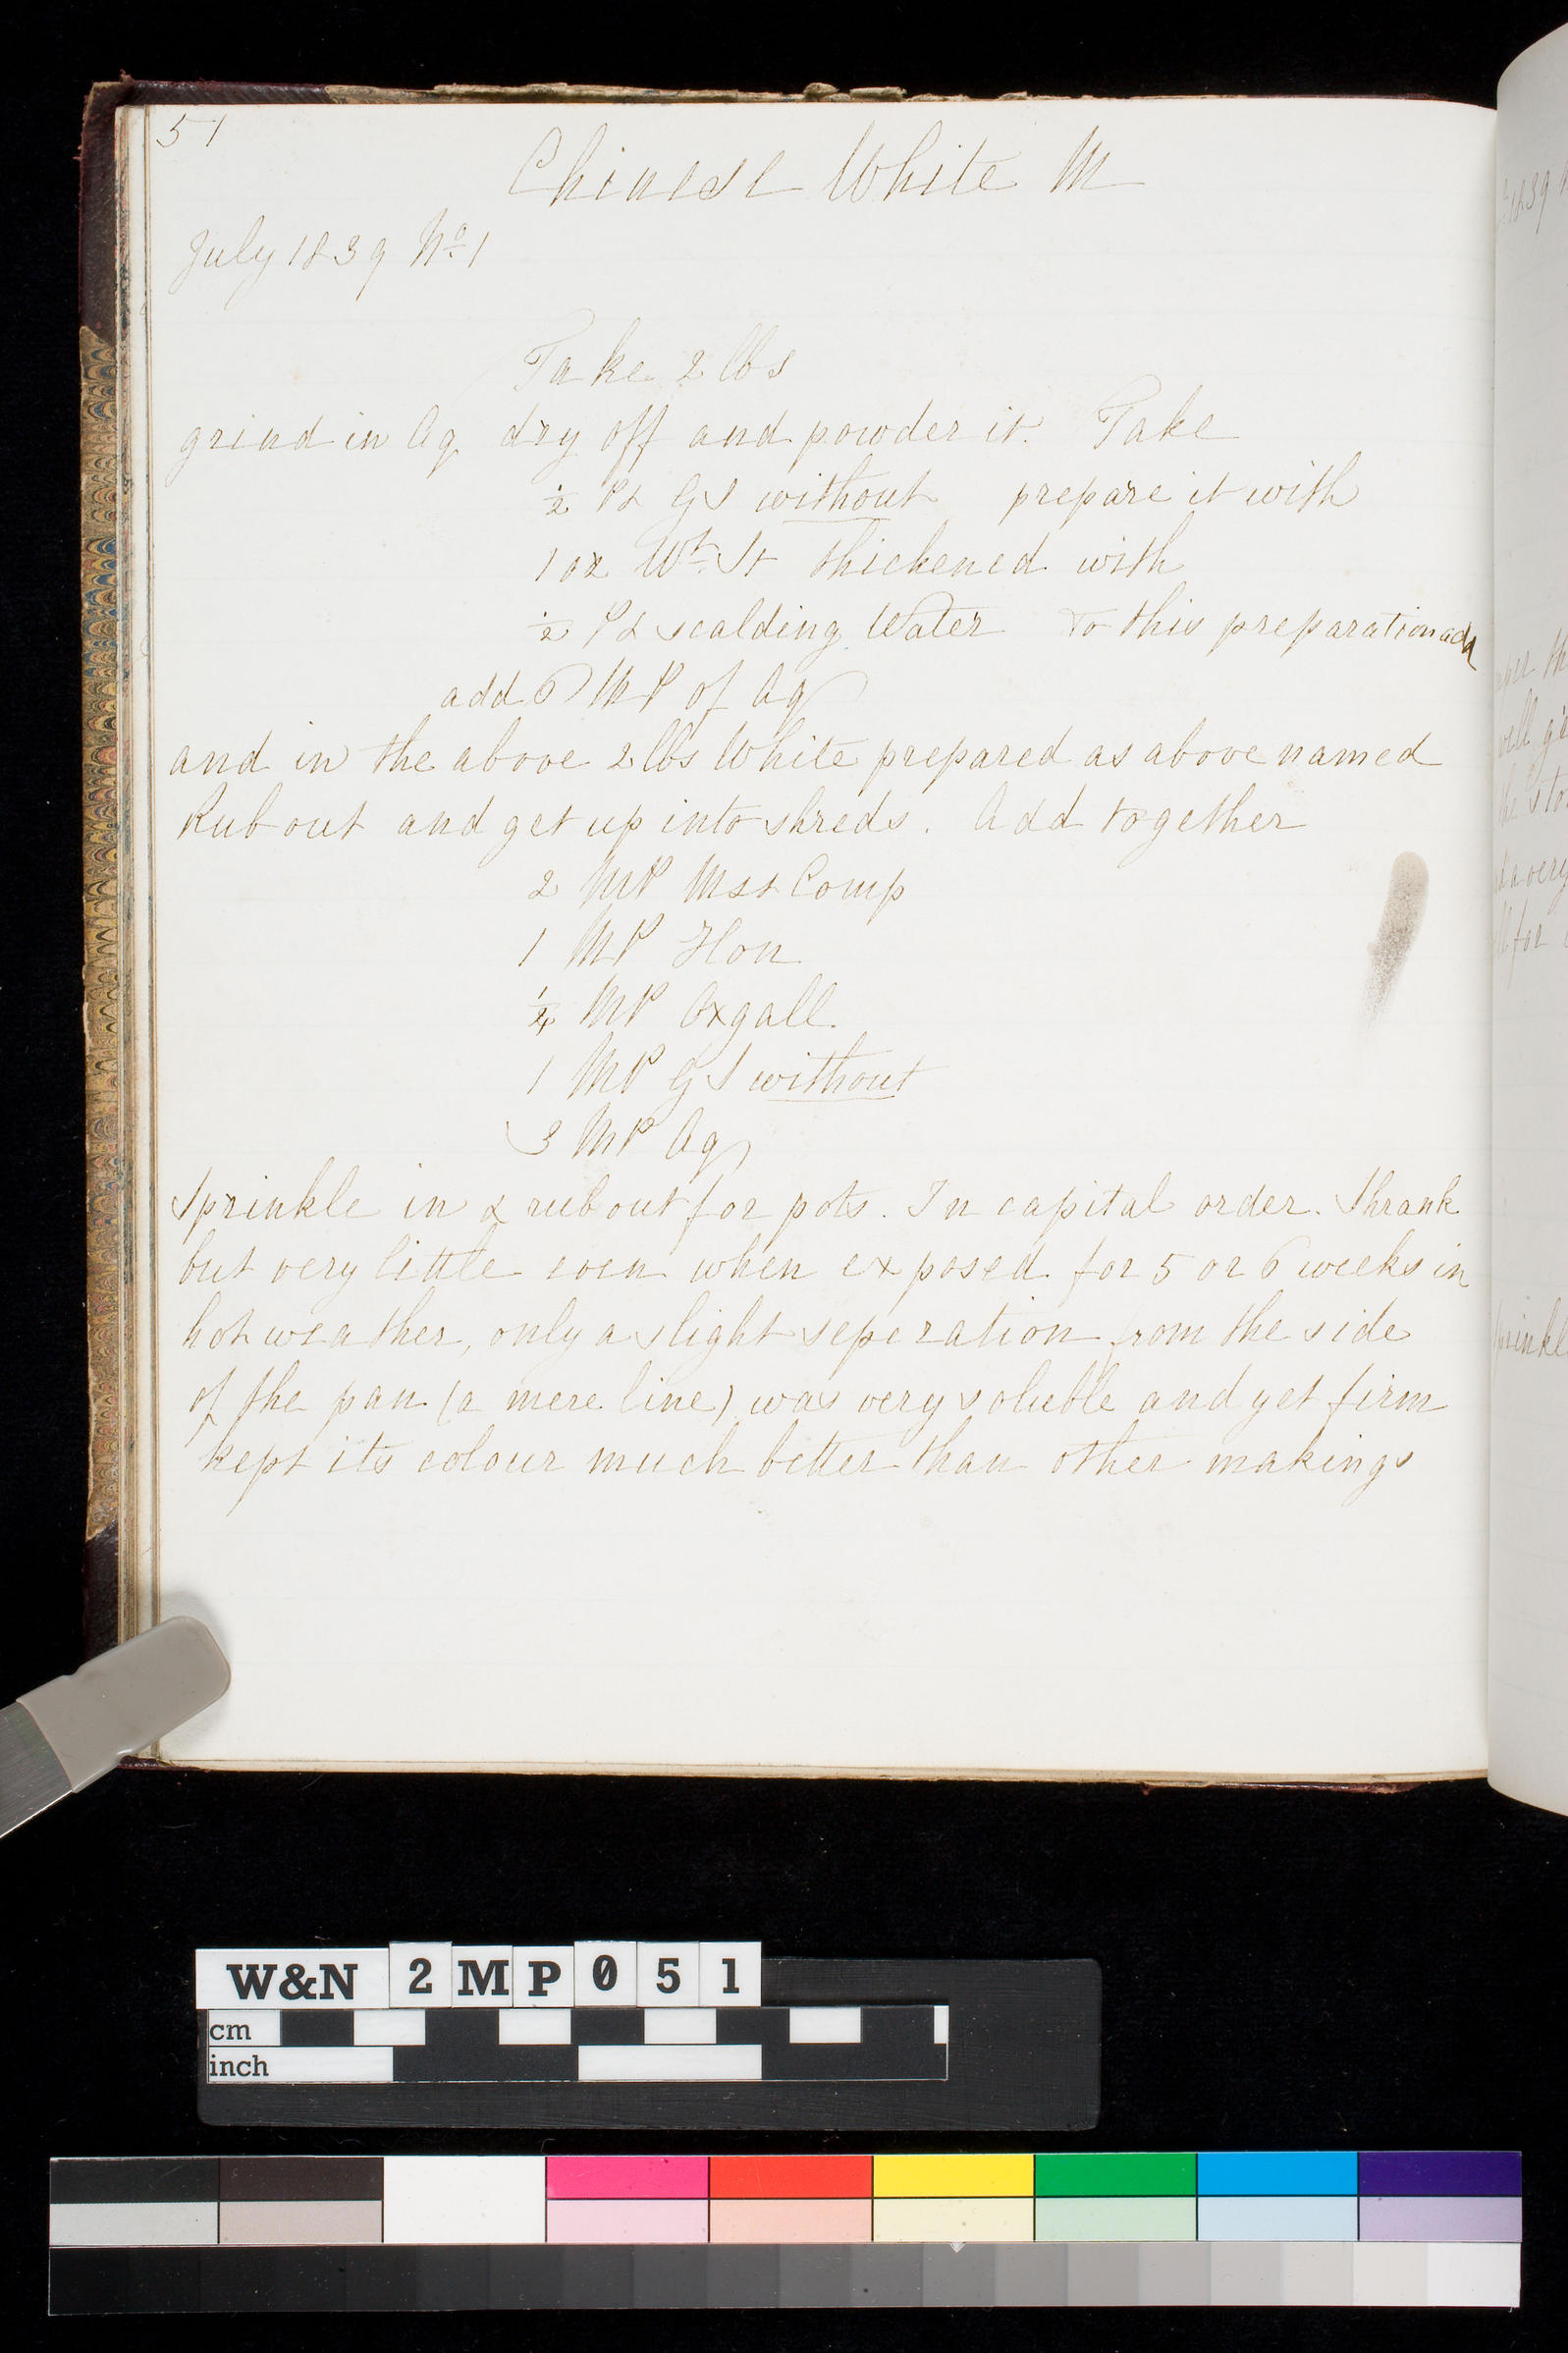 51
Chinese White M
July 1839 No. 1
Take 2 lbs
grind in Aq dry off and powder it. Take
½ Pt GS without prepare it with
1 oz Wt St thickened with
½ Pt scalding Water to this preparation add
add 6 MP of Aq
and in the above 2 lbs White prepared as above named
Rub out and get up into shreds. Add together
2 MP Mst Comp
1 MP Hon
¼ MP Oxgall.
1 MP GS without
3 MP Aq
Sprinkle in & rub out for pots. In capital order. Shrank
but very little even when exposed for 5 or 6 weeks in
hot weather, only a slight seperation from the side
of the pan (a mere line) was very soluble and yet firm
kept its colour much better than other makings
W&N 2MP051
cm
inch